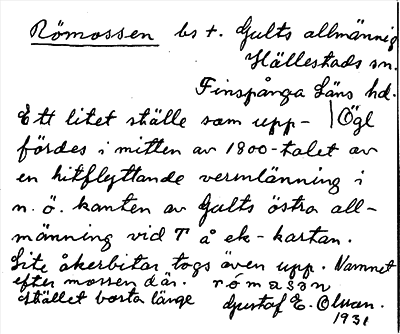 Römossen bs t. Gults allmänning
Hällestads sn.
Finspånga Läns hd.
Ett litet ställe som upp- | Ögl
fördes i mitten av 1800-talet av
en hitflyttande vermlänning i
n.ö. kanten av Gults östra all-
männing vid T å ek-kartan.
Lite åkerbitar togs även upp. Namnet
efter mossen där. rómasən
stället borta länge Gustaf E. Olsson.
1931